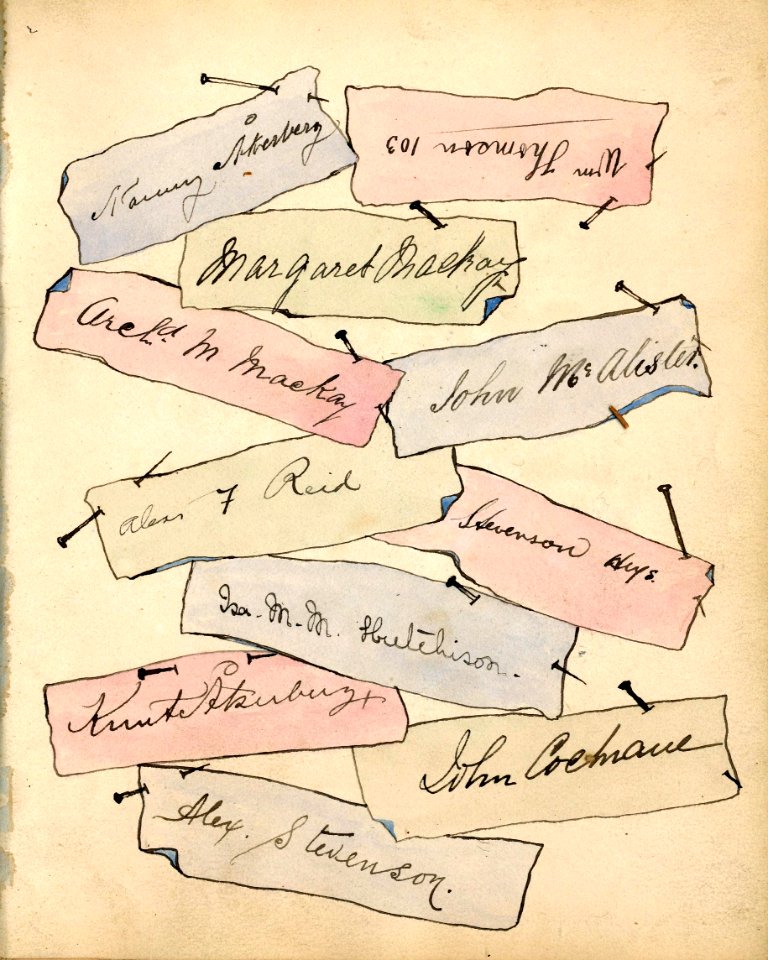 Nanny Åkerberg
Wm Thomson 103
Margaret Mackay
Archd. M Mackay
John Mc Alister.
Alexr F Reid
Stevenson Hys.
Isa. M. M. Hutchison.
Knut Åkerberg
John Cochrane
Alex. Stevenson.